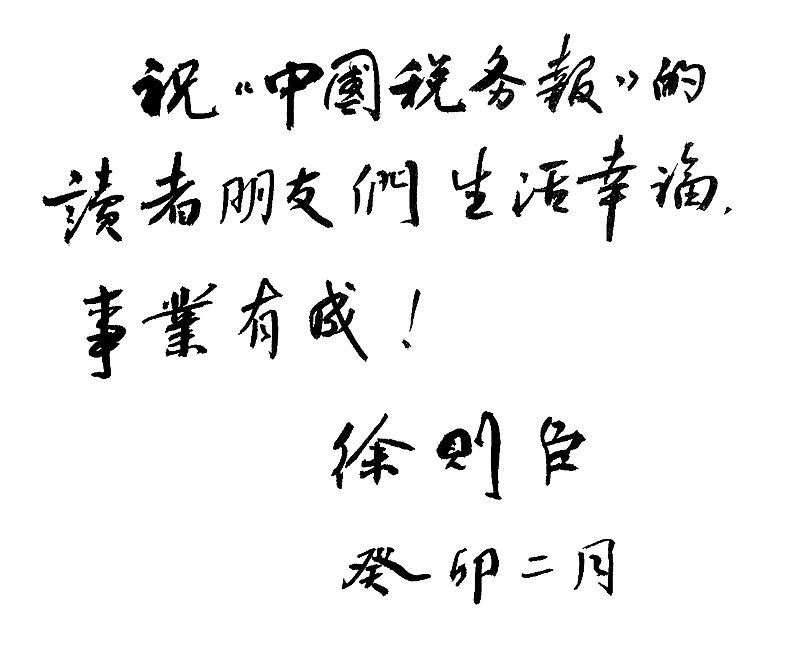 祝《中國税务報》的
讀者朋友們生活幸福,
事業有成！
徐则臣
癸卯二月